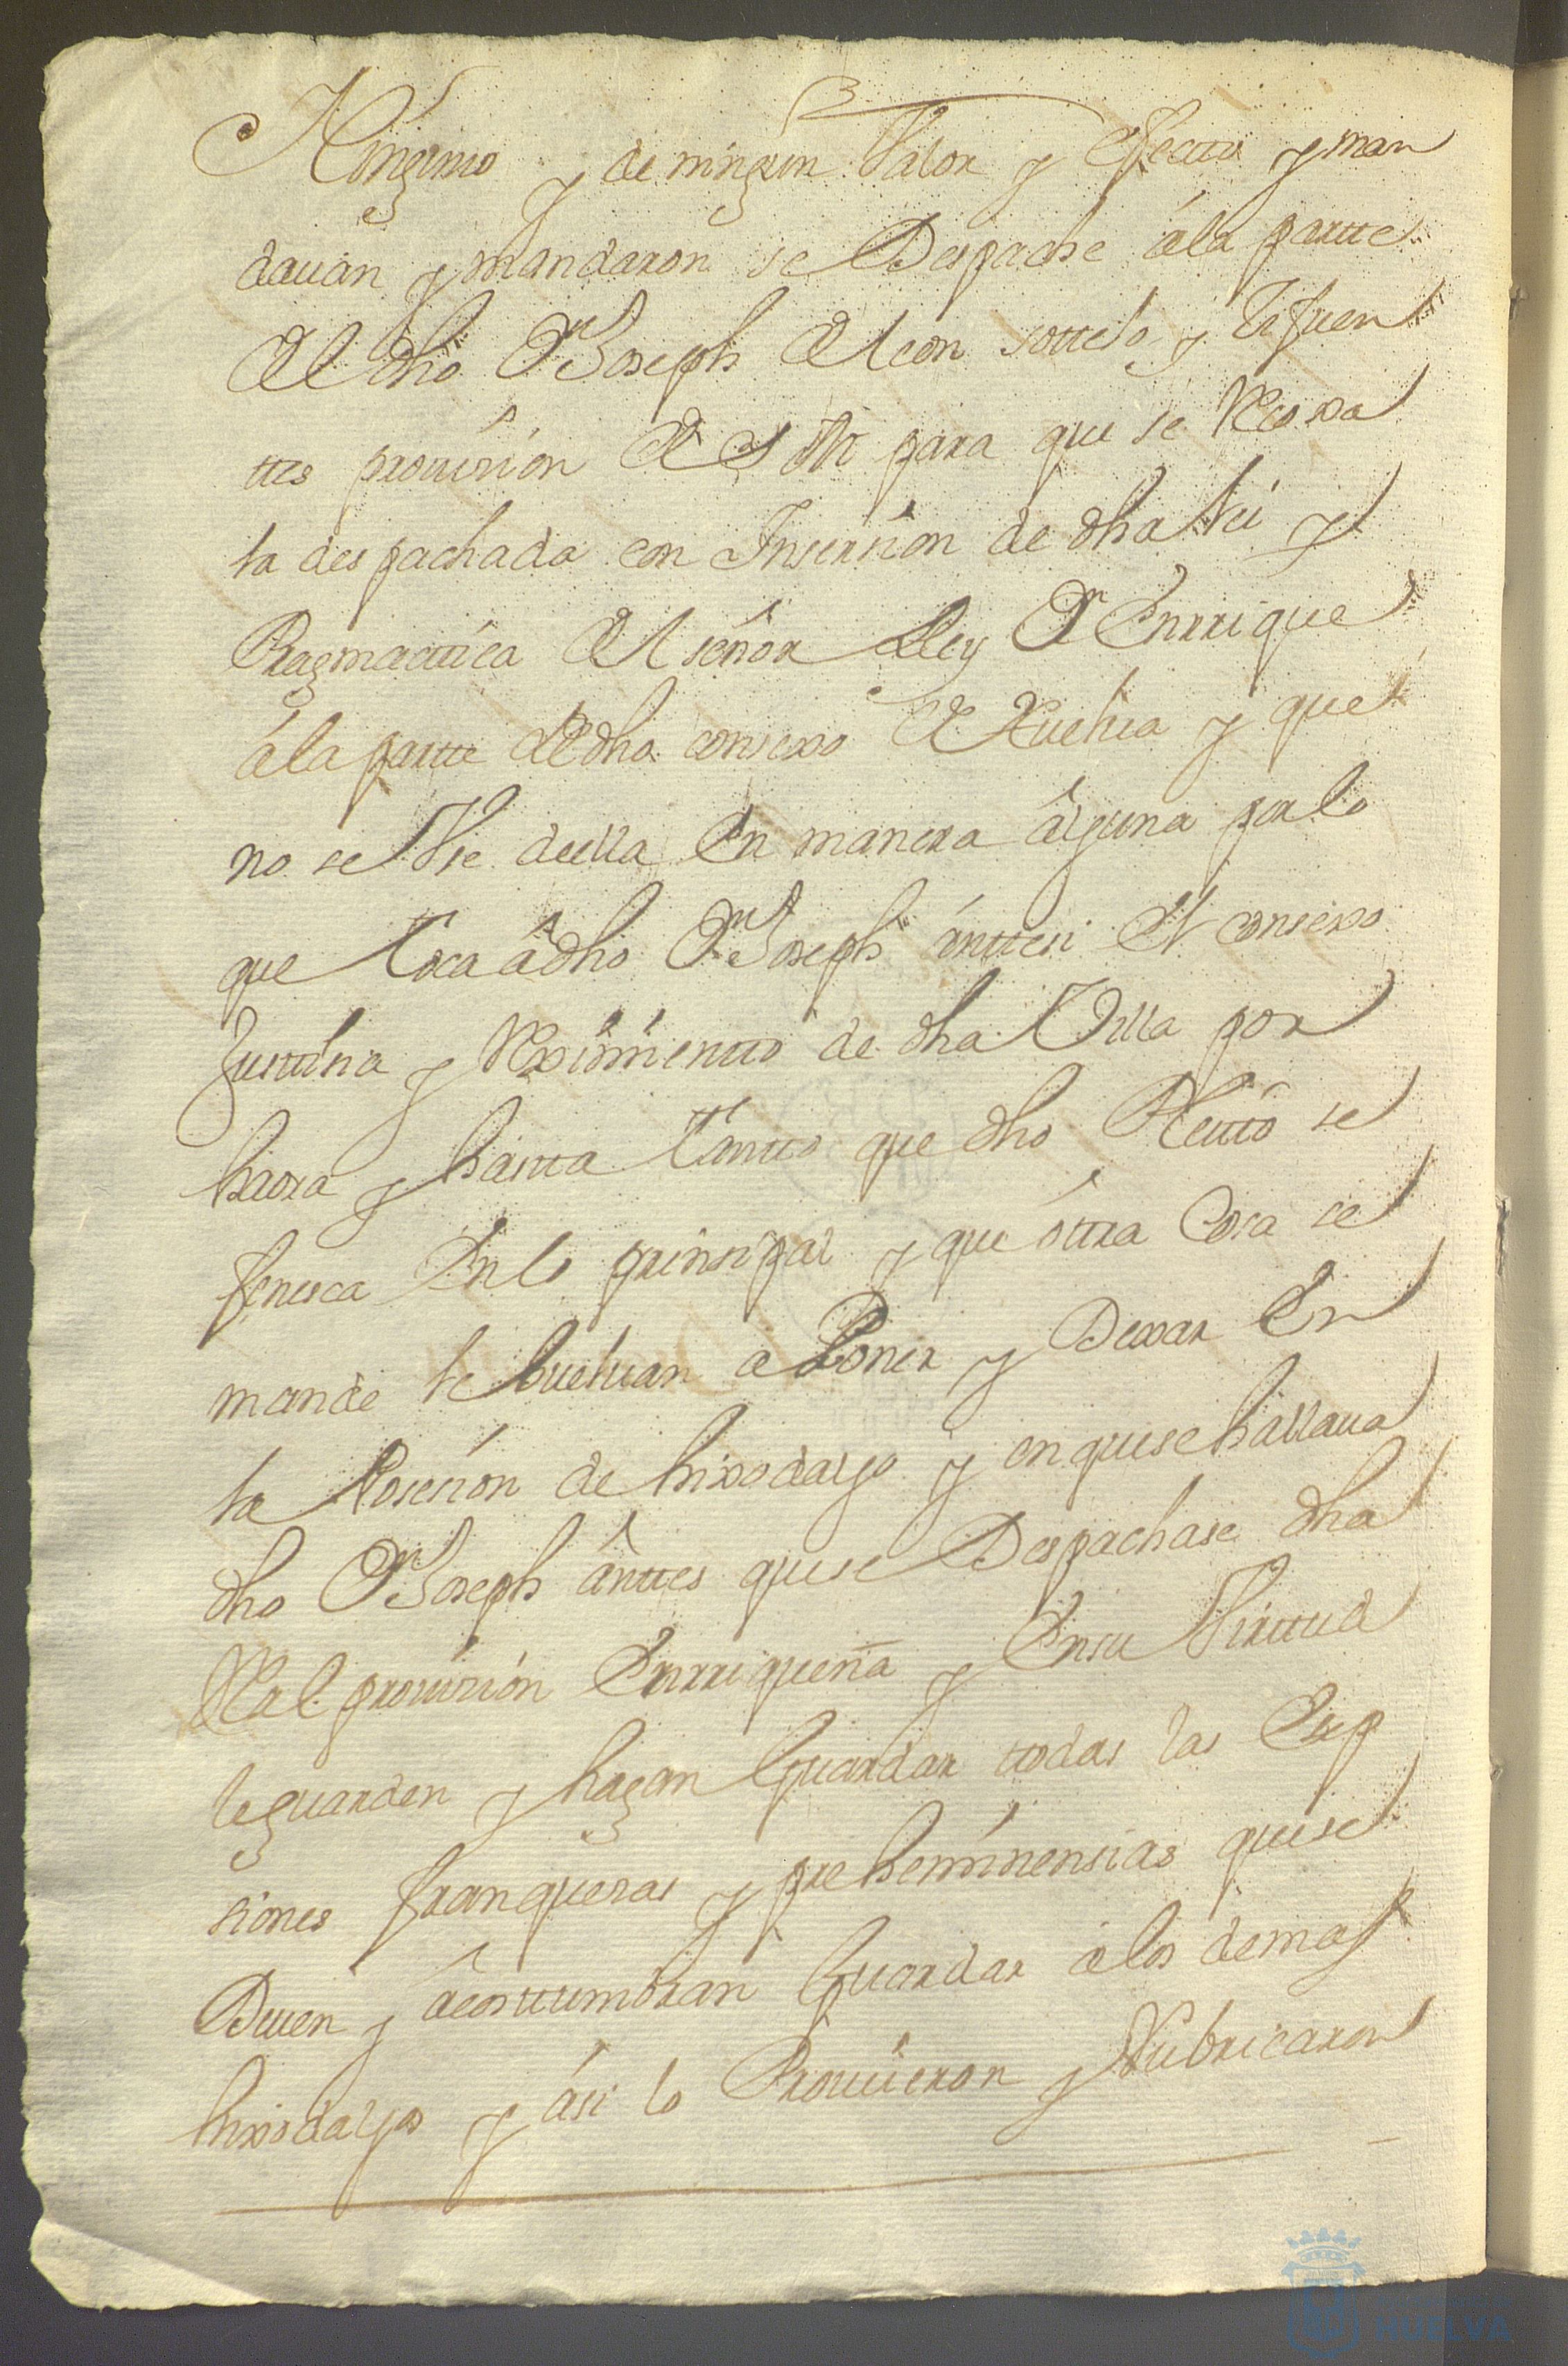 Ninguno y de ningun Valor y efectto y man
dauan y mandaron se Despache âla partte
del dho Dn Joseph de leon sottelo y Zifuen
ttes prouision de S M para que se Recoxa
la despachada con Insersion de dha Lei y
Pragmattica del señor Rey Dn Enrrique
âla partte de dho consexo de Huelua y que
no se Vse della En manera alguna por lo
que toca â dho Dn Joseph antes si el consexo
Justtisia y Reximientto de dha Villa por
haora y hastta tantto que dho Pleitto se
fenesca En lo prinsipal y que ottra Cosa se
mande le bueluan a Poner y Dexar En
la Posesion de hixodalgo y en que se hallaua
dho Dn Joseph anttes que se Despachase dha
Real prouision Enrriqueña y En su Virttud
le guarden y hagan Guardar todas las Exp
siones franquesas y preheminensias que se
Deuen y acosttumbran Guardar âlos demas
hixosdalgos y asi lo Prouieron y Rubricaron
HUELVA